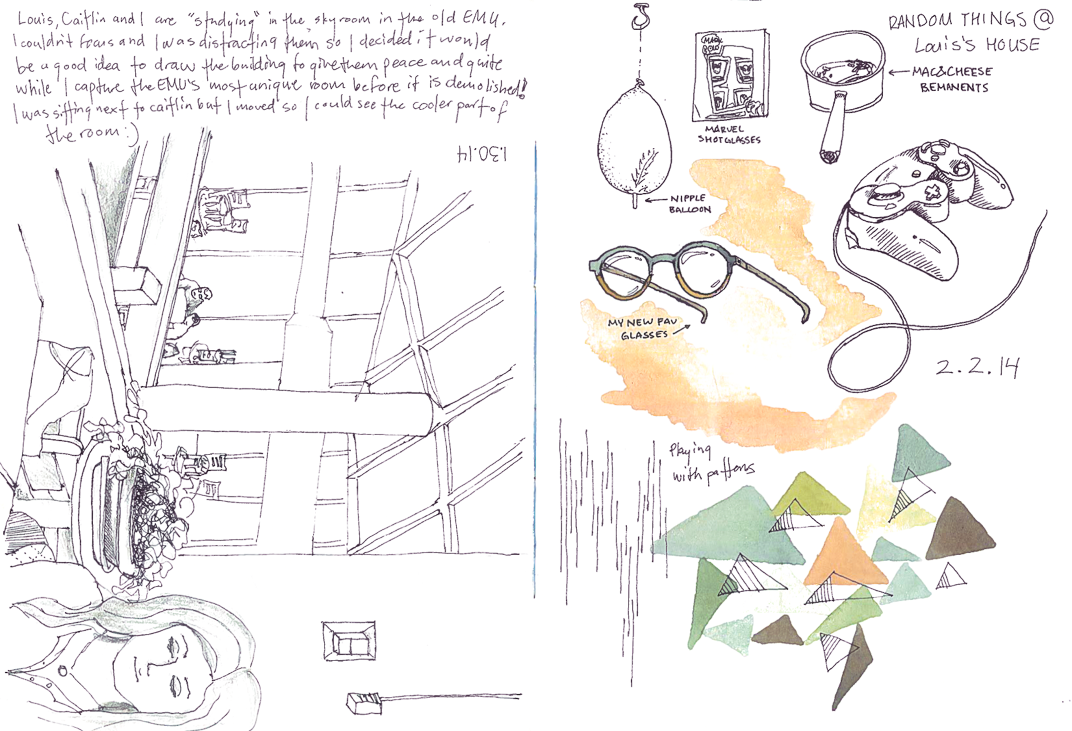 Louis, Caitlin and I are "studying" in the skyroom in the old EMU.
I couldn't focus and I was distracting them, so I decided it would
be a good idea to draw the building to give them peace and quite
while I capture the EMU's most unique room before it is demolished!
I was sitting next to caitlin but I moved so I could see the cooler part of
the room :)
1.30.14
RANDOM THINGS @
LOUIS'S HOUSE
MAC&CHEESE
BEMANENTS
MARVEL
SHOTGLASSES
NIPPLE
BALLOON
MY NEW FAV
GLASSES
2.2.14
Playing
with pattons